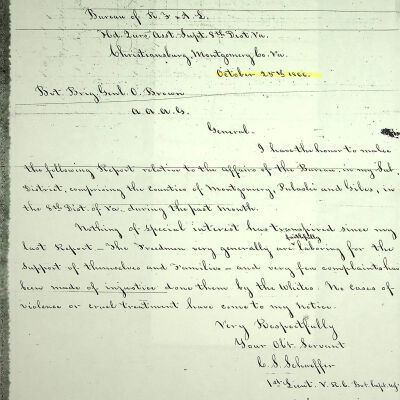 Bureau of R. F. & A. L.
Hd. Qurs. Asst. Supt. 8th Dist. Va.
Christiansburg, Montgomery Co. Va.
October 25th 1866.
Bvt. Brig. Genl. O. Brown
A. A. A. G.
General.
I have the honor to make
the following Report relative to the affairs of the Bureau, in my Sub.
District, comprising the Counties of Montgomery, Pulaski and Giles, in
the 8th Dist. of Va., during the past month.
Nothing of special interest has transpired since my
last Report – The Freedmen very generally are faithfully laboring for the
support of themselves and Families – and very few complaints have
been made of injustice done them by the Whites. No cases of
violence or cruel treatment have come to my notice.
Very Respectfully
Your Obt. Servant
C. S. Schaeffer
1st Lieut. V. R. C. Bvt. Capt.